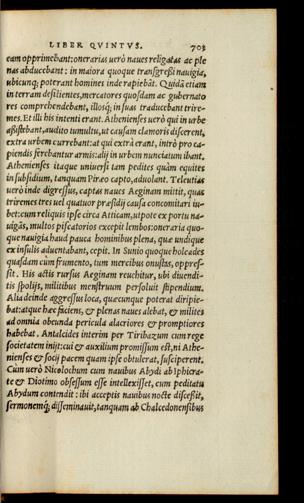 LIBER QVINTVS. 703
eam opprimebant: onerarias uerò naues religatas ac ple
nas abducebant: in maiora quoque transgreßi nauigia,
ubicunq; poterant homines inde rapiebāt. Quidā etiam
in terram desilientes, mercatores quosdam ac gubernato
res comprehendebant, illosq; in suas traducebant trire-
mes. Et illi his intenti erant. Athenienses uerò qui in urbe
aßistebant, audito tumultu, ut causam clamoris discerent,
extra urbem currebant: at qui extrà erant, intrò pro ca-
piendis ferebantur armis: alij in urbem nunciatum ibant.
Athenienses itaque uniuersi tam pedites quàm equites
in subsidium, tanquam Piræo capto, aduolant. Teleutias
uerò inde digressus, captas naues Aeginam mittit, quas
triremes tres uel quatuor præsidij causa concomitari iu-
bet: cum reliquis ipse circa Atticam, utpote ex portu na-
uigās, multos piscatorios excepit lembos: oneraria quo-
que nauigia haud pauca hominibus plena, quæ undique
ex insulis aduentabant, cepit. In Sunio quoque holcades
quasdam cum frumento, tum mercibus onustas, oppres-
sit. His actis rursus Aeginam reuehitur, ubi diuendi-
tis spolijs, militibus menstruum persoluit stipendium.
Alia deinde aggressus loca, quæcunque poterat diripie-
bat: atque hæc faciens, & plenas naues alebat, & milites
ad omnia obeunda pericula alacriores & promptiores
habebat. Antalcides interim per Tiribazum cum rege
societatem inijt: cui & auxilium promissum est, ni Athe-
nienses & socij pacem quam ipse obtulerat, susciperent.
Cùm uerò Nicolochum cum nauibus Abydi ab Iphicra-
te & Diotimo obsessum esse intellexisset, cum peditatu
Abydum contendit: ibi acceptis nauibus nocte discessit,
sermonemq; disseminauit, tanquam ab Chalcedonensibus